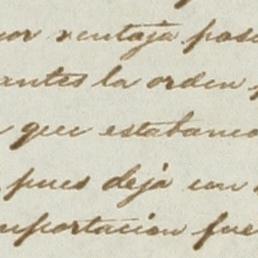 or ventaja pas
antes la orden
que estabamo
pues deja con
mportacion fue